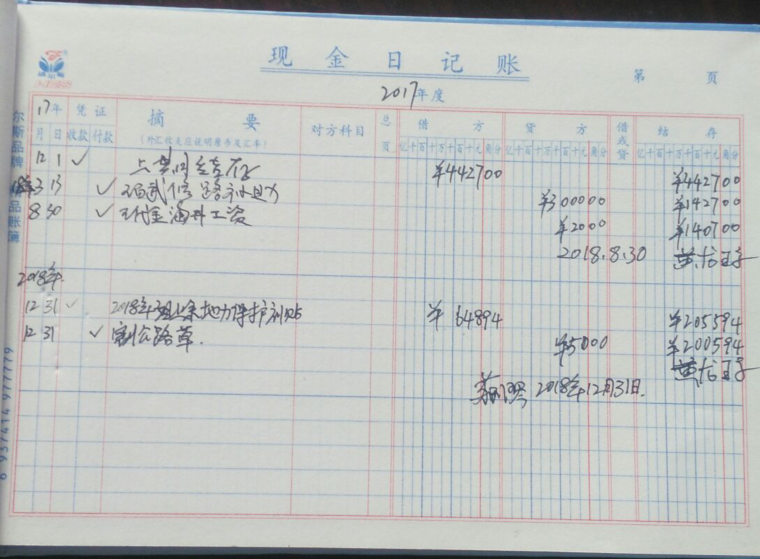 现金日记账
第 页
2017年度
17年 凭证 摘要 对方科目 总页 借方 贷方 借或贷 结存
月 日 收款 付款 (外汇收支应说明原币及汇率) 亿千百十万千百十元角分 亿千百十万千百十元角分 亿千百十万千百十元角分
12 1 ✓ 上 结存 ¥442700 ¥442700
3 13 ✓ 修路 ¥300000 ¥142700
8 30 ✓ 工资 ¥2000 ¥140700
2018.8.30
2018年
12 31 ✓ 2018年 地力保护补贴 ¥64894 ¥205594
12 31 ✓ 割公路草. ¥5000 ¥200594
2018年12月31日.
品牌
品账簿
6 937414 977779